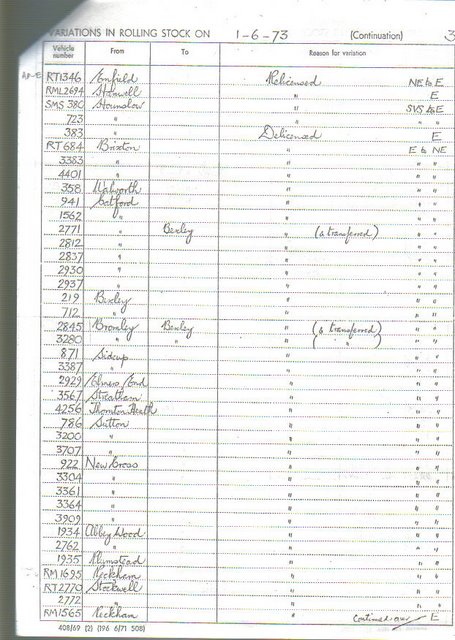 VARIATIONS IN ROLLING STOCK ON 1-6-73 (Continuation) 3
Vehicle number From To Reason for variation
RT1346 Enfield Relicensed NE to E
RML2694 Holwell E
SMS 380 Hounslow " SVS to E
723 " " " "
383 " Delicensed E
RT684 Brixton " E to NE
3383 " " " "
4401 " " " "
358 Walworth " " "
941 Catford " " "
1562 " " " "
2771 " Bexley " (& transferred) " "
2812 " " " "
2837 " " " "
2930 " " " "
2937 " " " "
219 Bexley " " "
712 " " " "
2845 Bromley Bexley " (& transferred) " "
3280 " " " ( " " ) " "
871 Sidcup " " "
3387 " " " "
2929 Elmers End " " "
3567 Streatham " " "
4256 Thornton Heath " " "
786 Sutton " " "
3200 " " " "
3707 " " " "
922 New Cross " " "
3304 " " " "
3361 " " " "
3364 " " " "
3909 " " " "
1934 Abbey Wood " " "
2762 " " " "
1935 Plumstead " " "
RM1695 Peckham " " "
RT2770 Stockwell " " "
2772 " " " "
RM1565 Peckham " Continued over E
408/69 (2) (196 6/71 508)